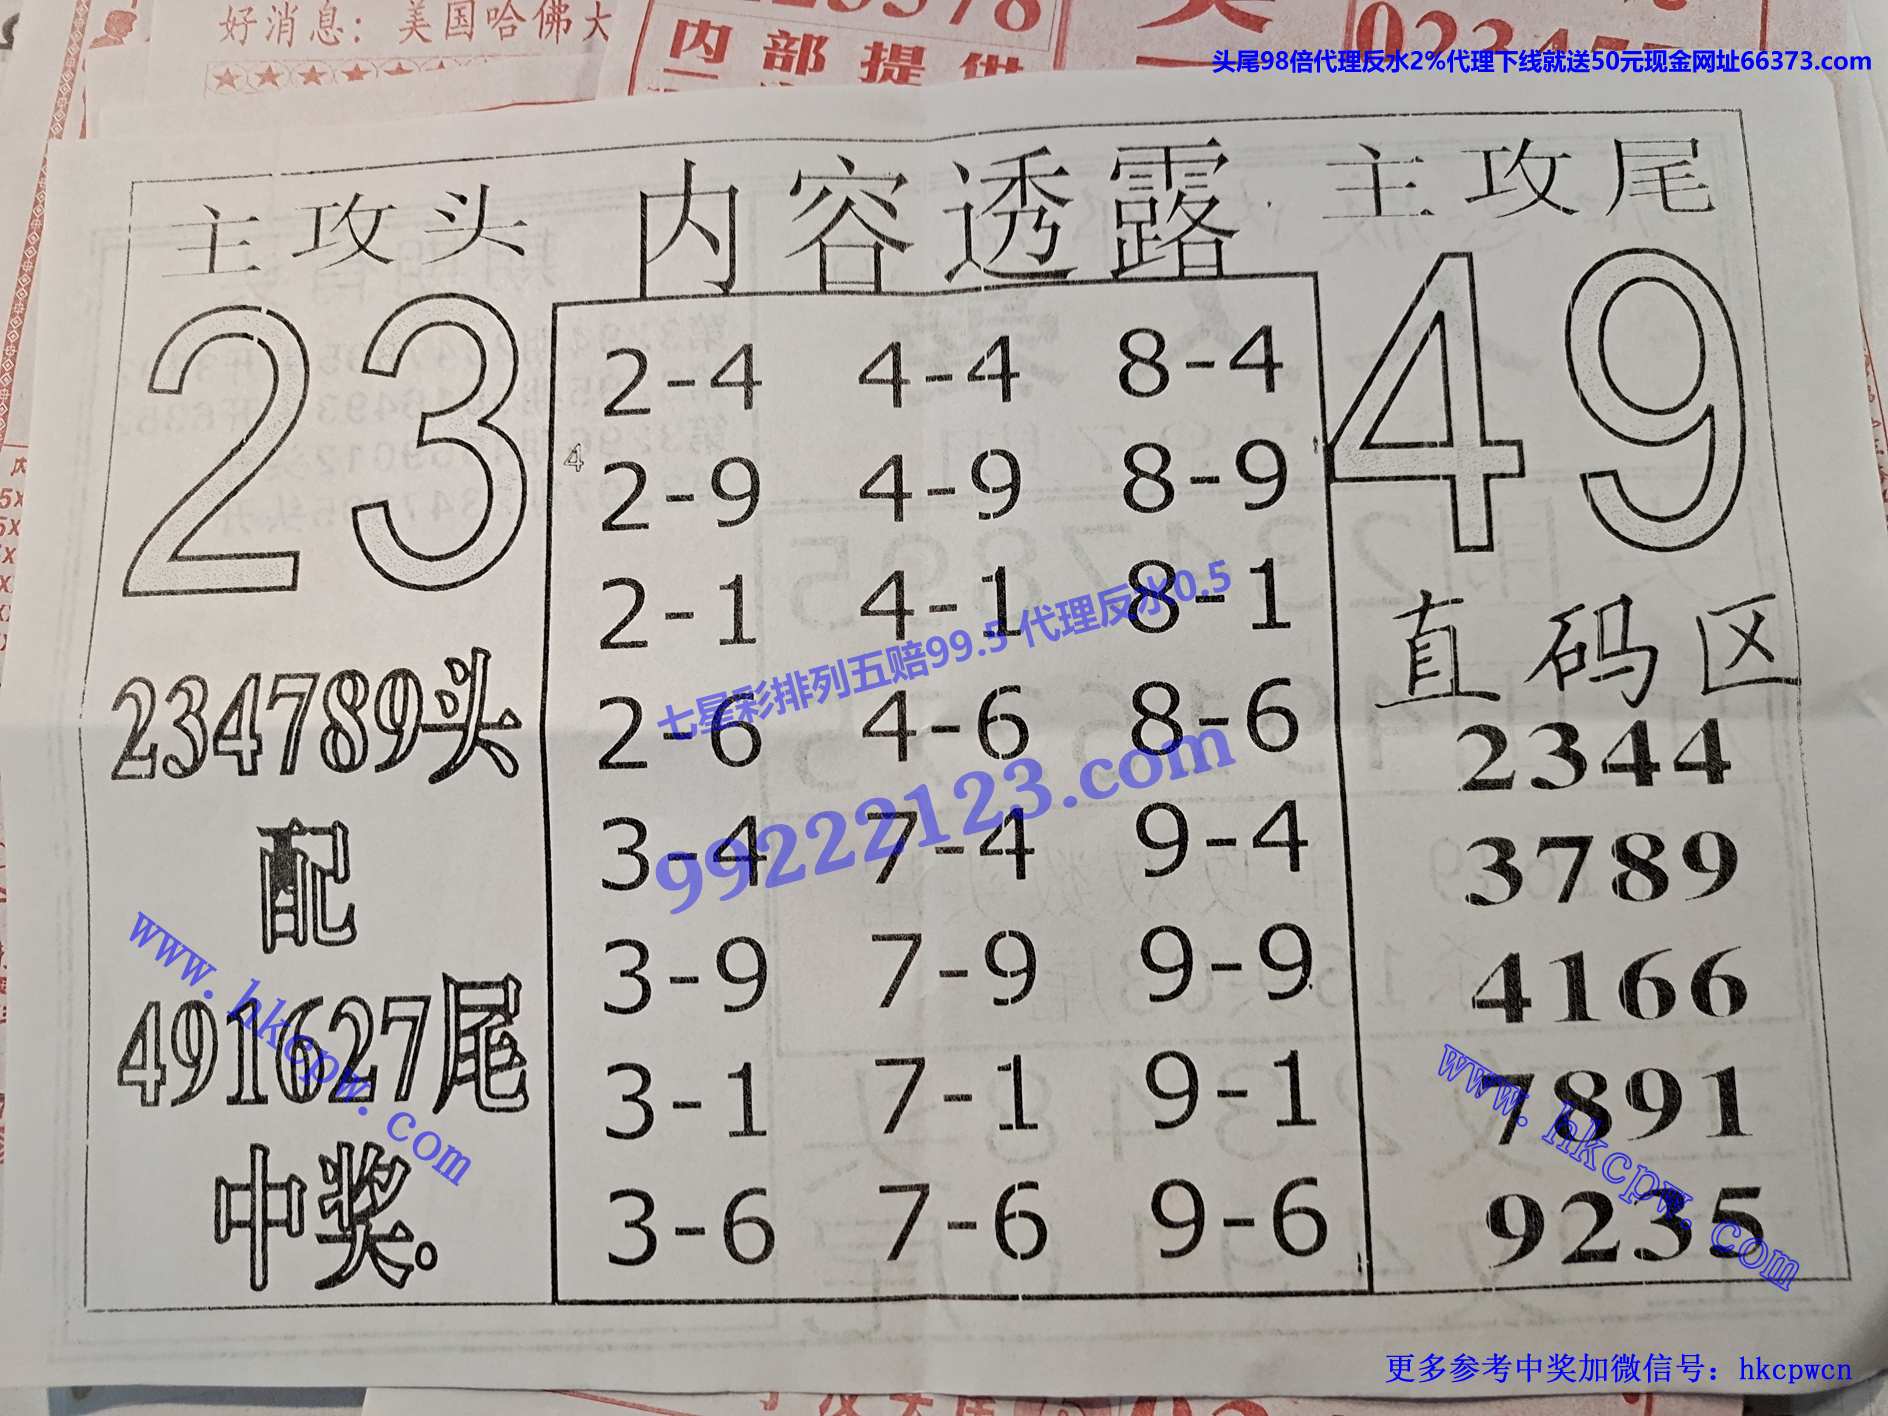 好消息：美国哈佛大
内部提供
头尾98倍代理反水2%代理下线就送50元现金网址66373.com
主攻头
内容透露
主攻尾
23
49
2-4 4-4 8-4
4
2-9 4-9 8-9
2-1 4-1 8-1
2-6 4-6 8-6
3-4 7-4 9-4
3-9 7-9 9-9
3-1 7-1 9-1
3-6 7-6 9-6
234789头
配
491627尾
中奖。
直码区
2344
3789
4166
7891
9235
七星彩排列五赔99.5 代理反水0.5
99222123.com
www.hkcpw.com
www.hkcpw.com
更多参考中奖加微信号：hkcpwcn